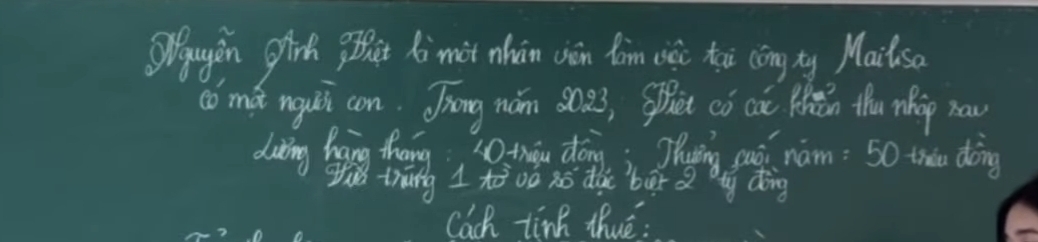 Nguyễn Anh Việt là một nhân viên làm việc tại công ty Mailisa
có một người con. Trong năm 2023, Việt có các khoản thu nhập sau
Lương hàng tháng: 40 triệu đồng; Thưởng cuối năm: 50 triệu đồng
Việt trúng 1 tờ vé số đặc biệt 2 tỷ đồng
Cách tính thuế: